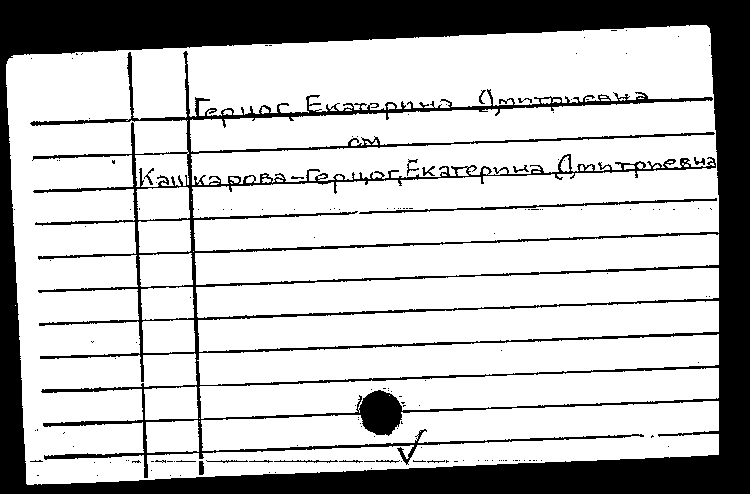 Герцог, Екатерина Дмитриевна
см
Кашкарова-Герцог, Екатерина Дмитриевна